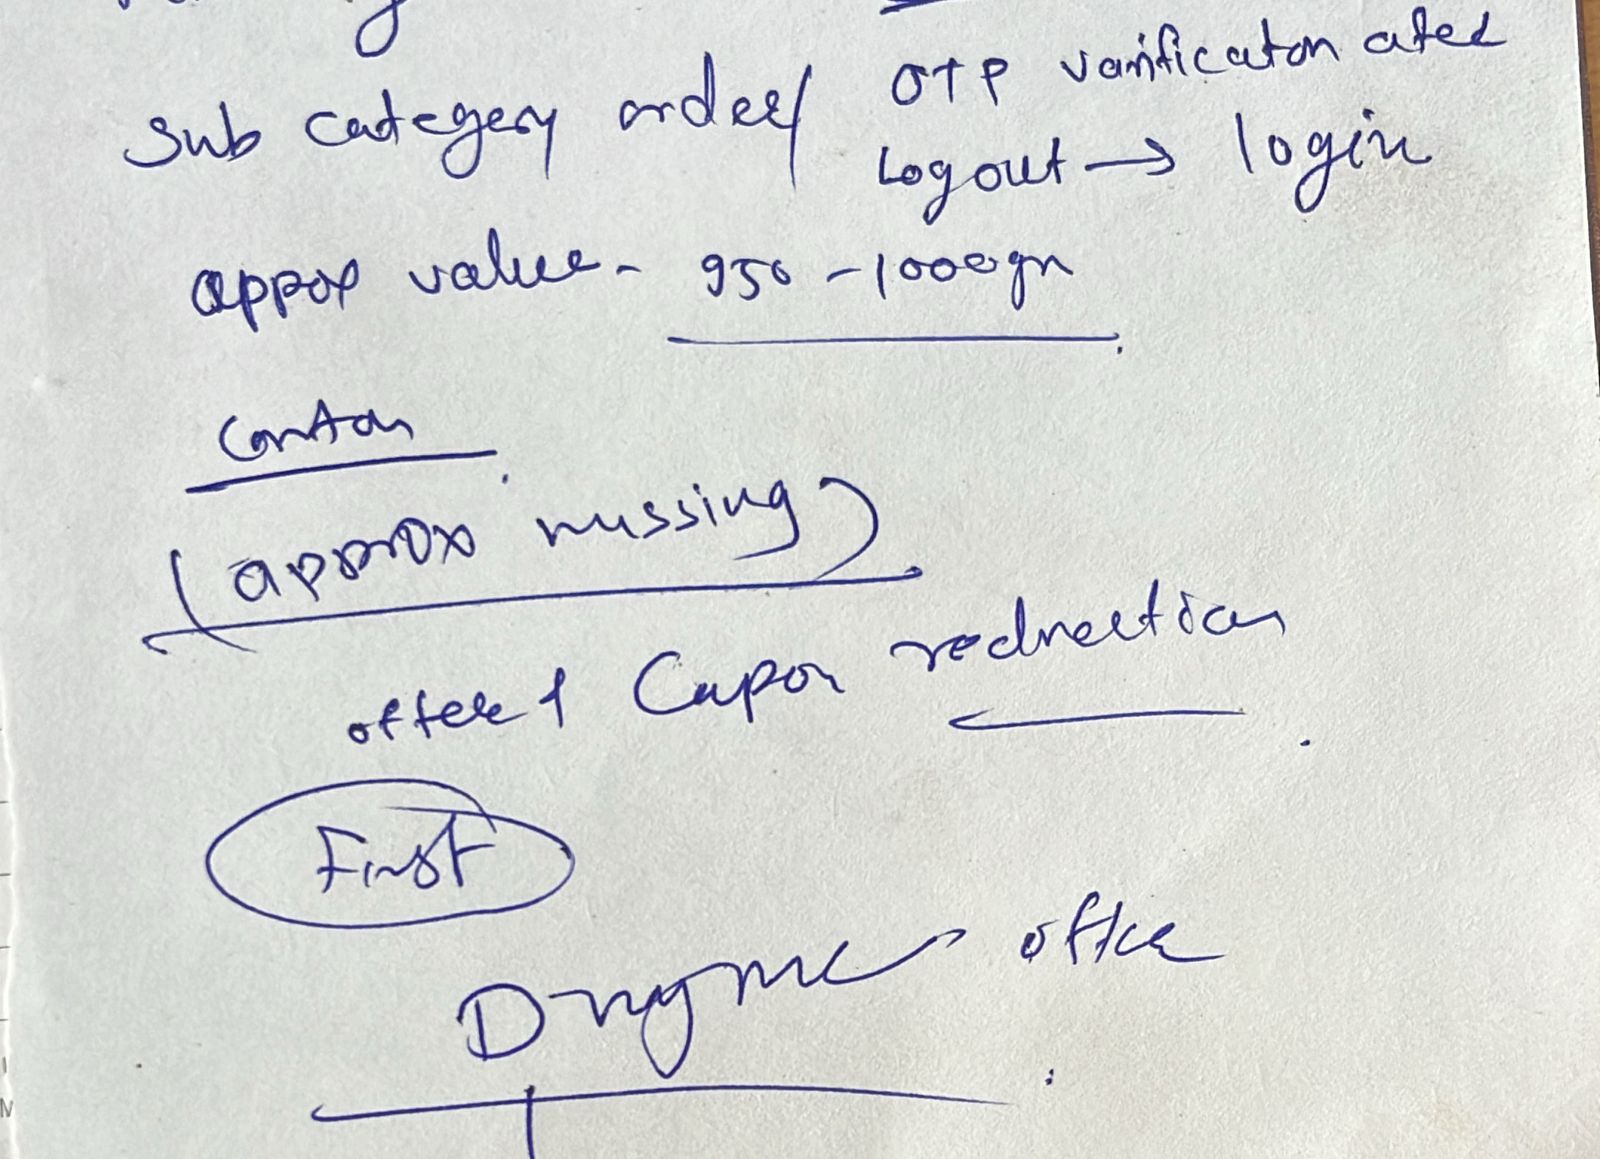 Sub category order/
OTP varification after
Logout → login
appox value - 950 - 1000gm
(approx missing)
offer & Cupon redirection
First
offer